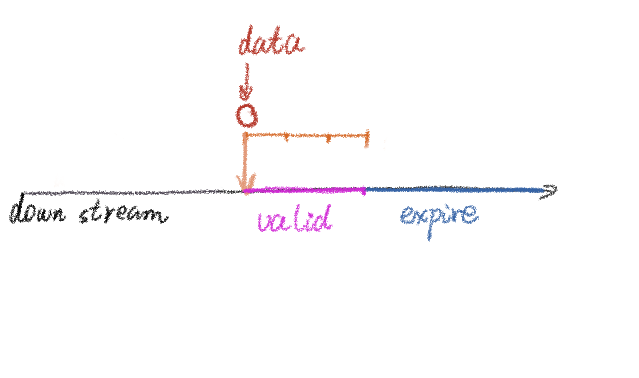 data
down stream
valid
expire